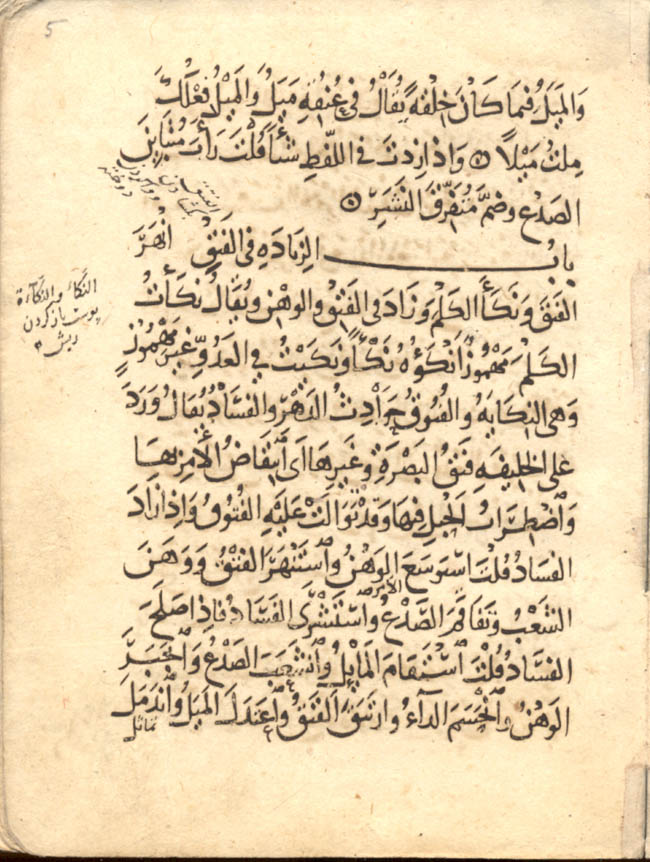 5
وَالمَيَلُ فيمَا كَانَ خِلْقَةً يُقَالُ في عُنُقِهِ مَيَلٌ وَالمَيْلُ فِعْلُكَ
مِلتُ مَيْلاً وَاذا زِدتَ في اللَّفْظِ شَيْأً قُلتَ رَأَبَ مُتَبَاينَ
الصَدْعِ وضَمَّ مُتَفَرِّقَ النَشَرِ
بابُ الزِيَادَهِ في الفَتْقِ أنْهَرَ
الفَتقَ وَنَكَأَ الكَلْمَ وَزَادَ في الفَتْقِ والوَهْنِ ويُقَالُ نَكَأْتُ
الكَلْمَ مَهْمُوزٌ أَنْكَؤُهُ نَكْأً وَنَكَيْتُ في العَدُوِّ غَيْرَ مَهْمُوزٍ
وَهي النِكَايَهُ وَالفُتُوقُ حَوَادِثُ الدَهْرِ والفَسَادُ يُقالُ وَرَدَ
على الخَليفَهِ فَتقُ البَصْرَةِ وغَيرِهَا اَى انتِقَاضُ الأَمرِ بهَا
وَاضْطِرابُ الحَبلِ فيهَا وقَدْ تَوَالَتْ عَلَيْهِ الفُتُوقُ وَاِذا زَادَ
الفسَادُ قُلْتَ اسْتَوسَعَ الوَهْنُ وَاسْتَنْهَرَ الفَتْقُ وَوَهَنَ
الامر
الشَعْبُ وَتَفَاقَمَ الصَّدْعُ وَاسْتَشْرَى الفَسَادُ فاِذا صَلَحَ
الفَسَادُ قُلْتَ اسْتَقَامَ المَائِلُ وَانْشَعَبَ الصَدْعُ وَانْجَبَرَ
الوَهْنُ وَانْحَسَمَ الدَآءُ وَارتَتَقَ الفَتقُ وَاعتَدَلَ المَيَلُ وَانْدَمَلَ
تماثل
النَكَأُ والنَكَآءَة
پوست باز كردن
ريش